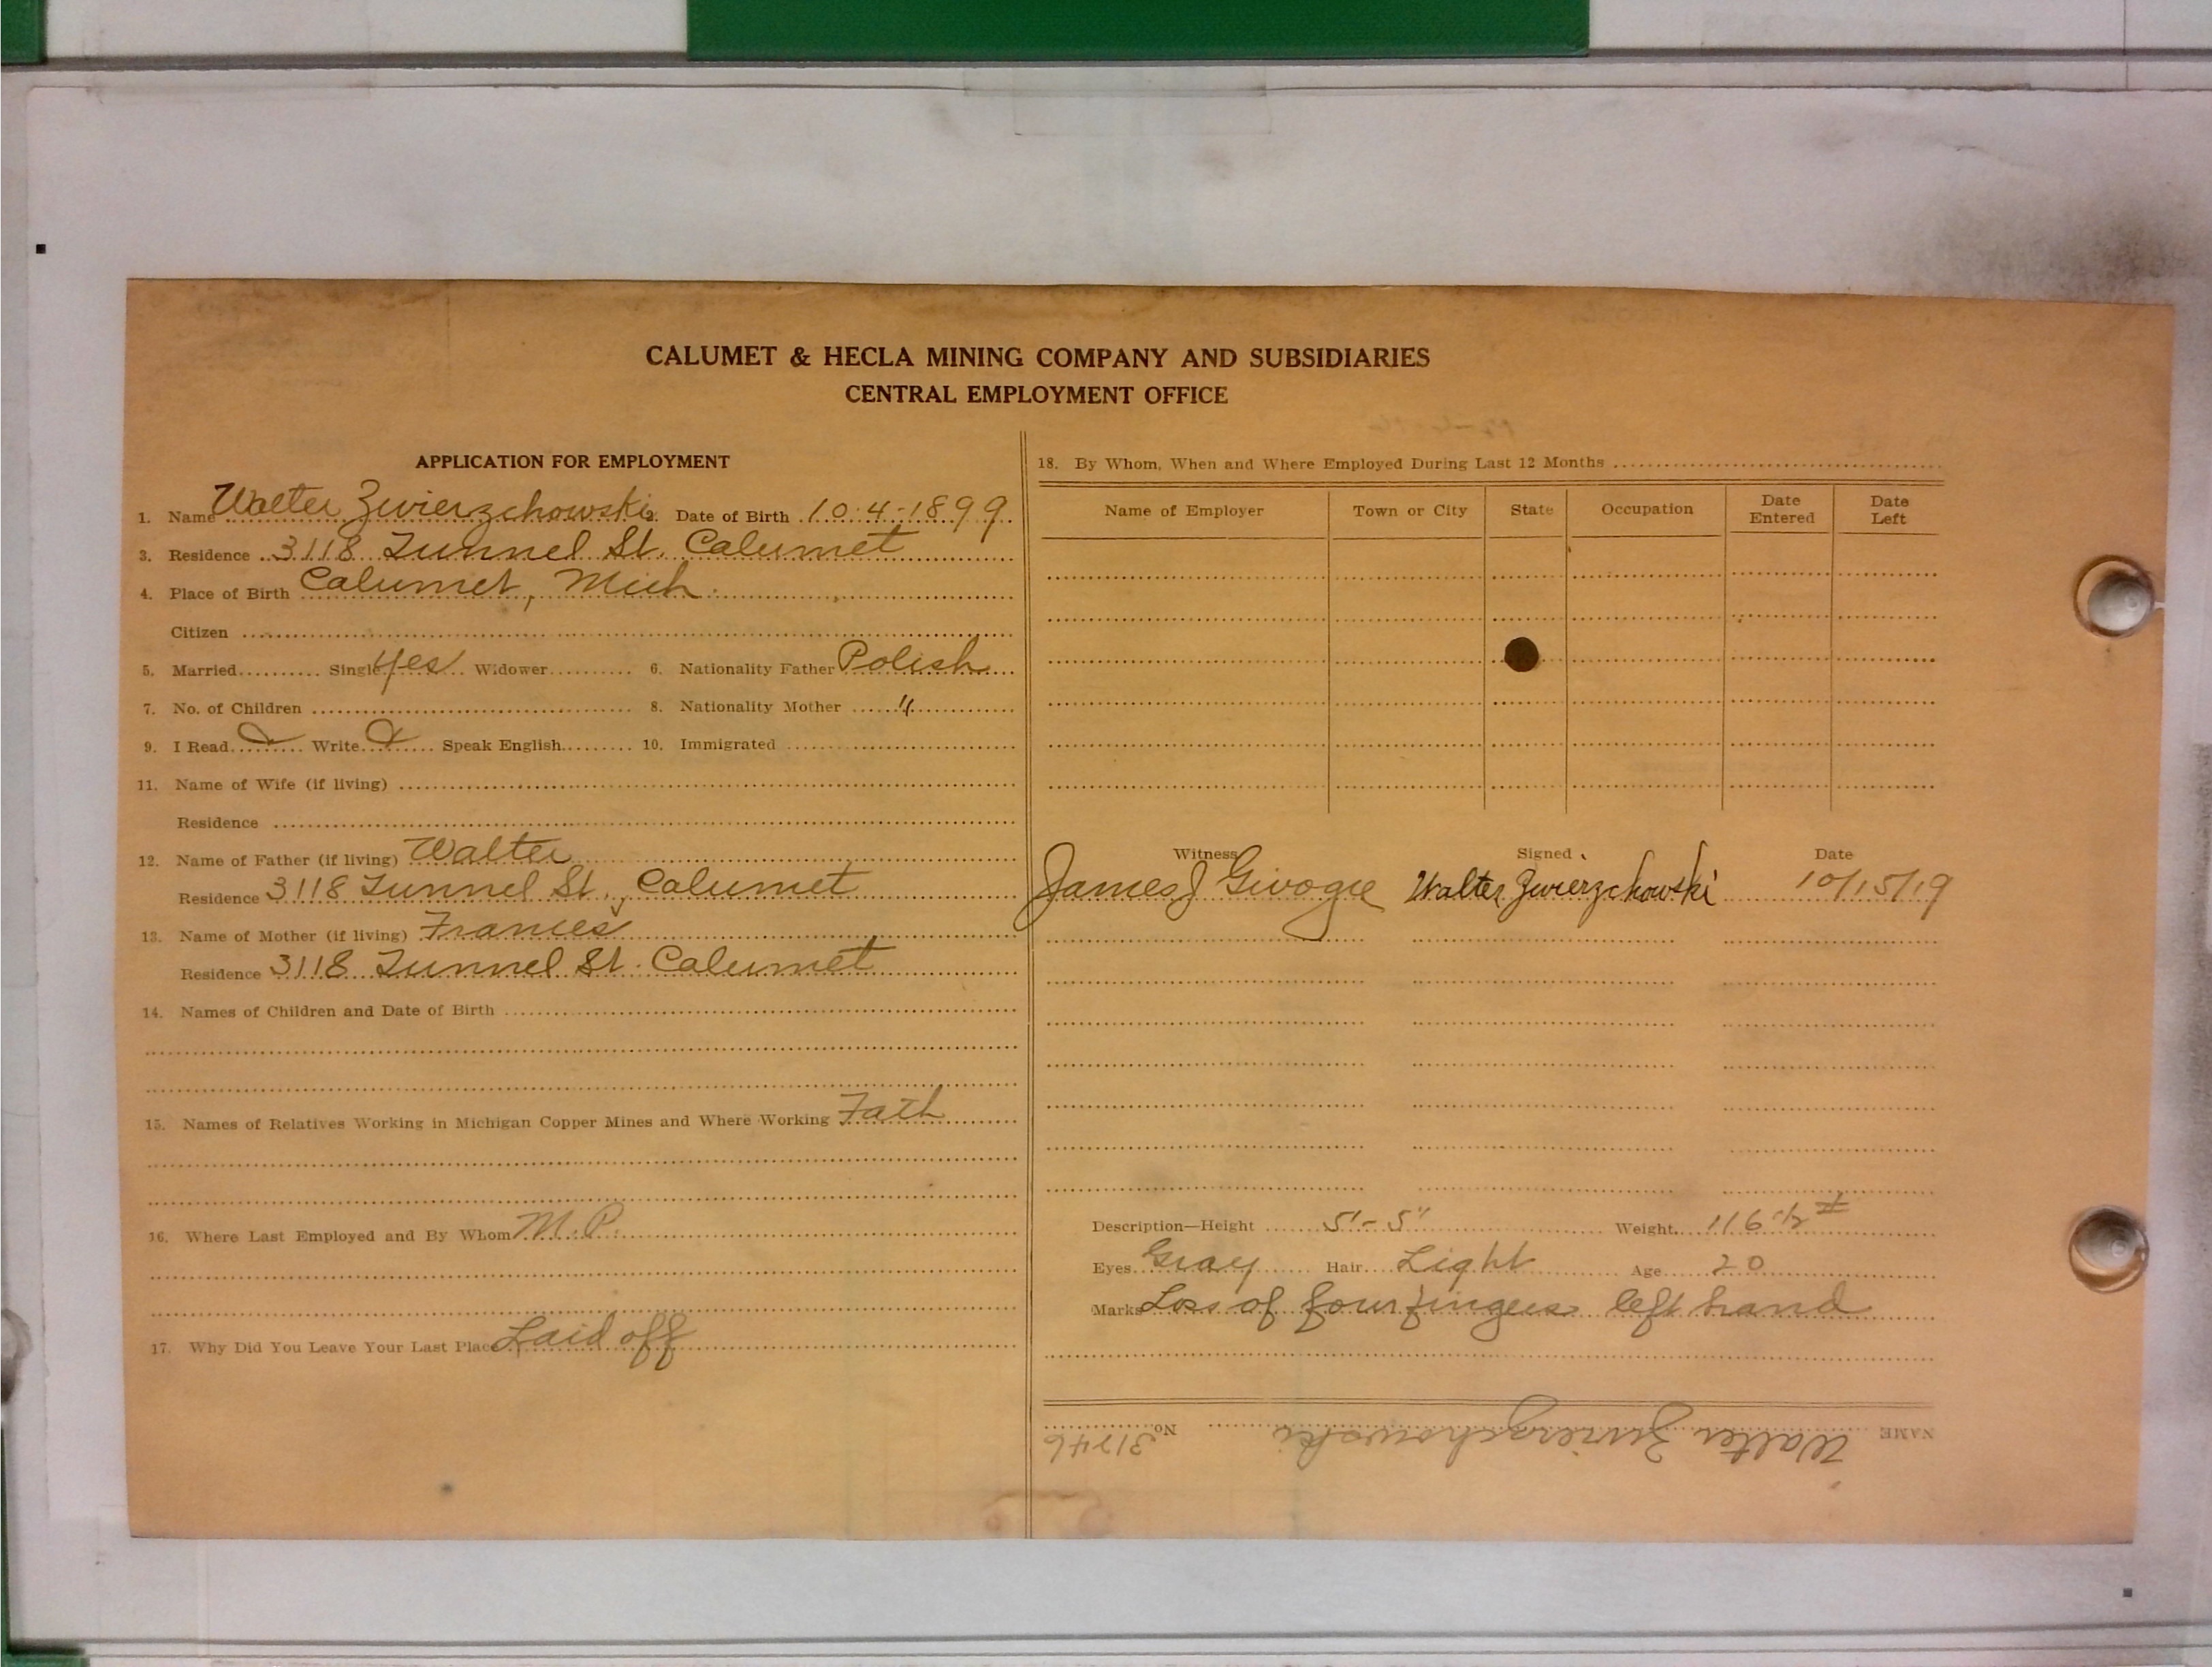 CALUMET & HECLA MINING COMPANY AND SUBSIDIARIES
CENTRAL EMPLOYMENT OFFICE
APPLICATION FOR EMPLOYMENT
1. Name Walter Zwierzchowski 2. Date of Birth 10-4-1899
3. Residence 3118 Tunnel St. Calumet
4. Place of Birth Calumet, Mich
Citizen
5. Married Single yes Widower 6. Nationality Father Polish
7. No. of Children 8. Nationality Mother "
9. I Read Write Speak English 10. Immigrated
11. Name of Wife (if living)
Residence
12. Name of Father (if living) Walter
Residence 3118 Tunnel St., Calumet
13. Name of Mother (if living) Frances
Residence 3118 Tunnel St. Calumet
14. Names of Children and Date of Birth
15. Names of Relatives Working in Michigan Copper Mines and Where Working Fath
16. Where Last Employed and By Whom M.P.
17. Why Did You Leave Your Last Place Laid off
18. By Whom, When and Where Employed During Last 12 Months
Name of Employer Town or City State Occupation Date Entered Date Left
Witness Signed Date
James J Walter Zwierzchowski 10/15/19
Description—Height 5'-5" Weight 116 1/2 #
Eyes Gray Hair Light Age 20
Marks Loss of four fingers left hand
NAME Walter Zwierzchowski No. 31746